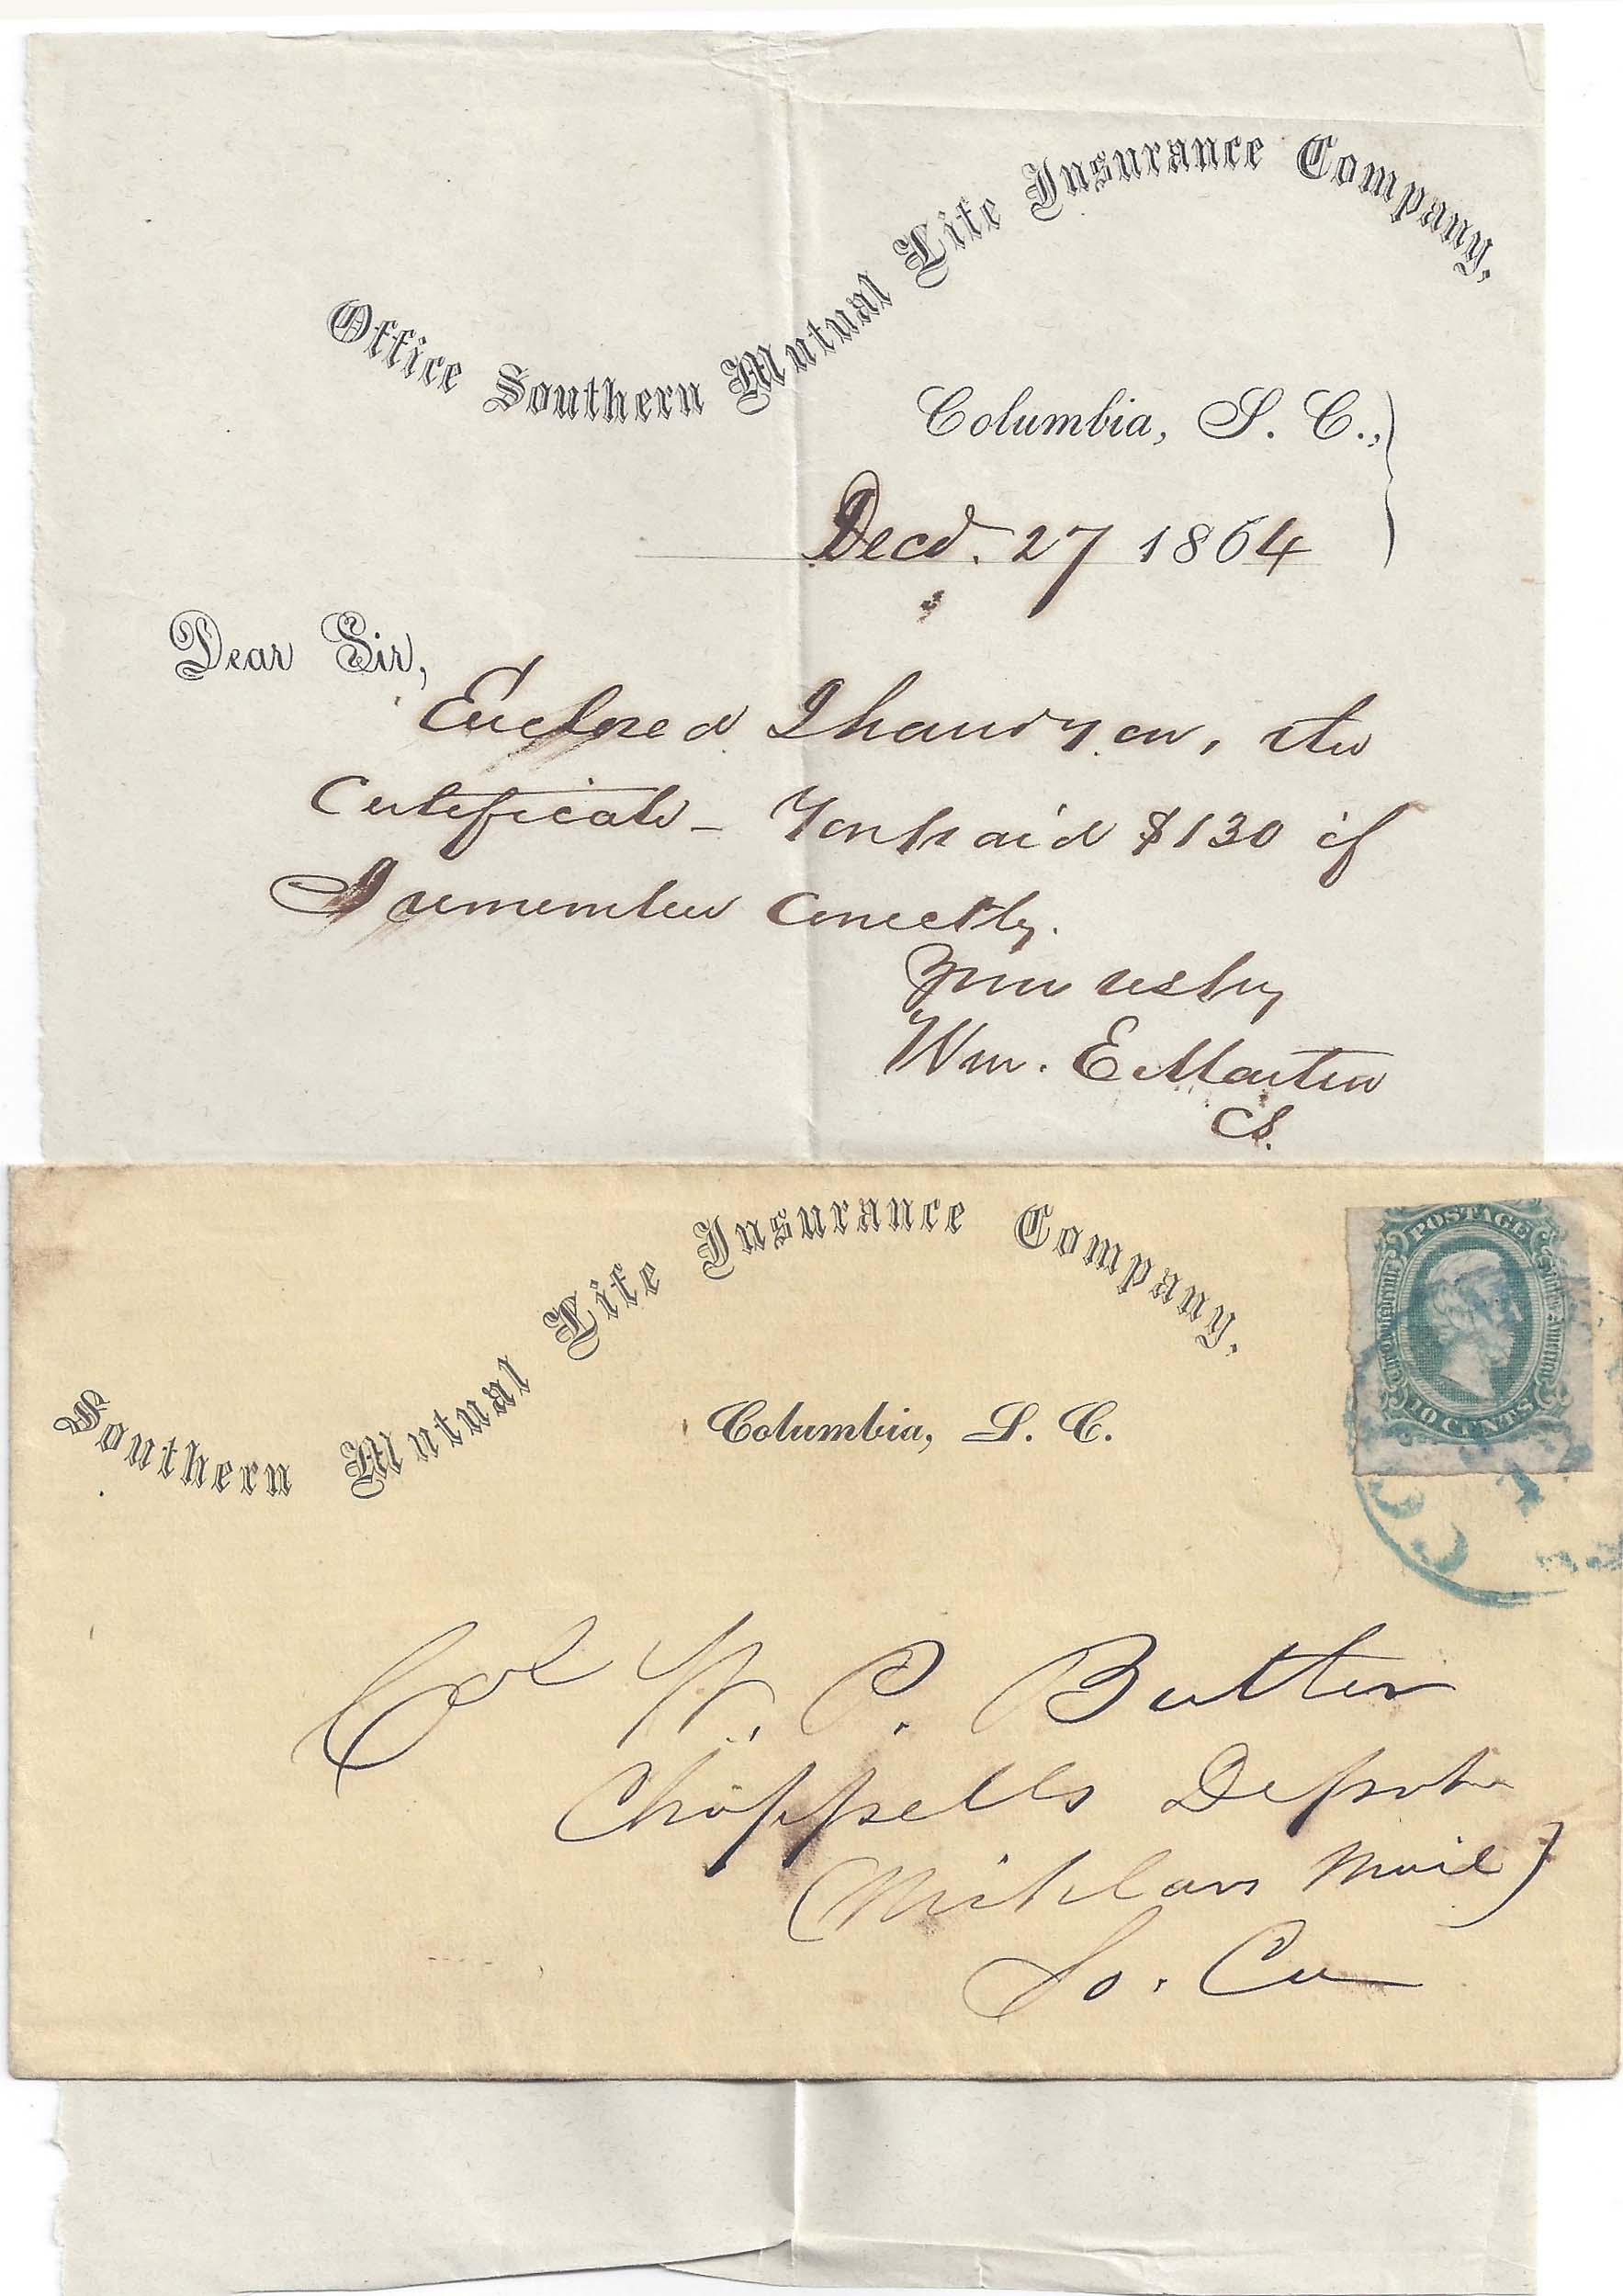 Office Southern Mutual Life Insurance Company,
Columbia, S. C.,
Decd. 27 1864
Dear Sir,
Enclosed I hand you, the
Certificate – You paid $130 if
I remember correctly.
Your resptly
Wm. E Martin
Southern Mutual Life Insurance Company,
Columbia, S. C.
POSTAGE
The Confederate States of America
10 CENTS
Col W. P. Butler
Chappells Depot
Mail)
So. Ca